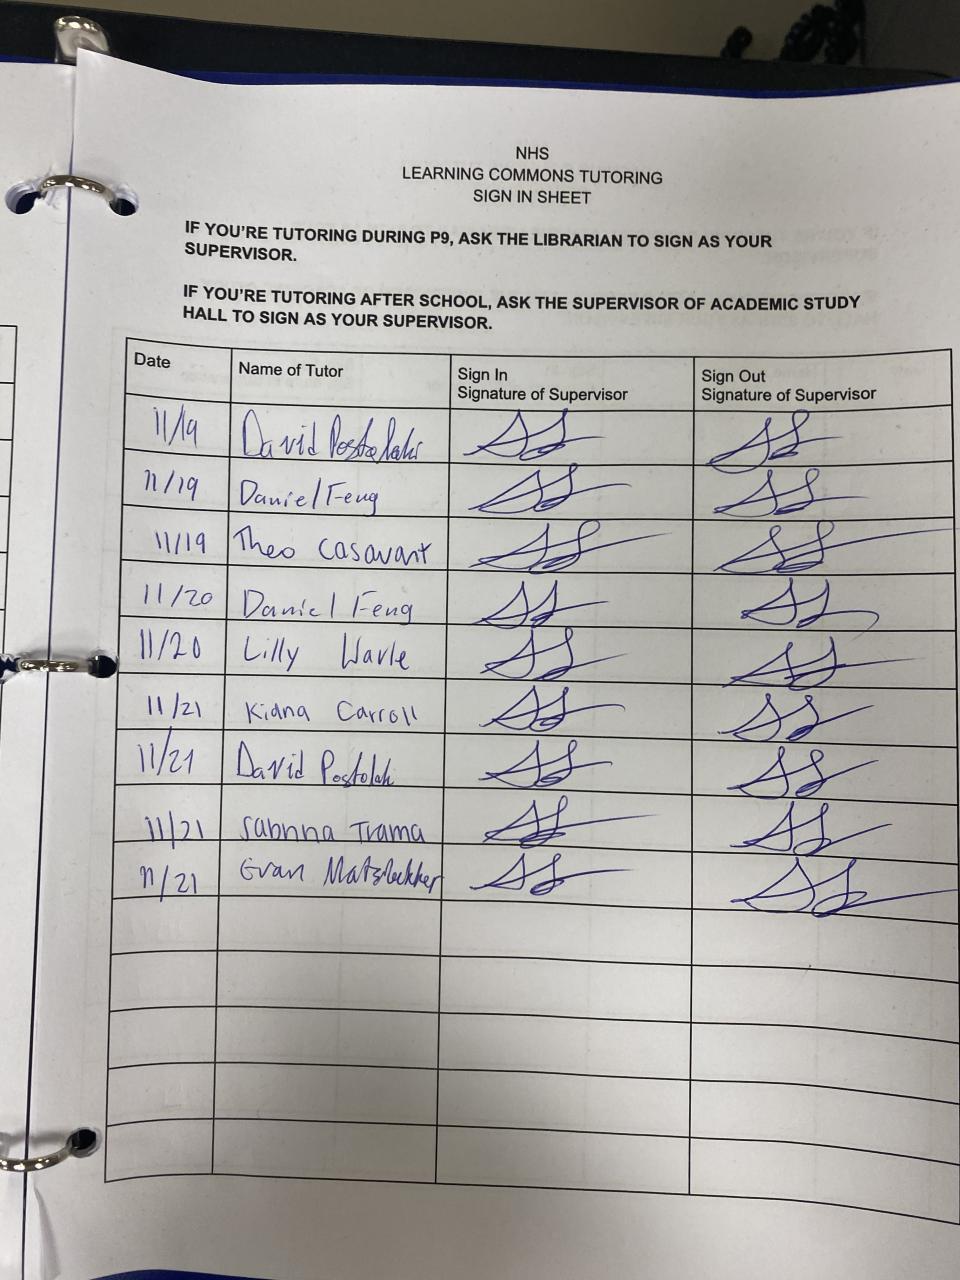 NHS
LEARNING COMMONS TUTORING
SIGN IN SHEET
IF YOU'RE TUTORING DURING P9, ASK THE LIBRARIAN TO SIGN AS YOUR
SUPERVISOR.
IF YOU'RE TUTORING AFTER SCHOOL, ASK THE SUPERVISOR OF ACADEMIC STUDY
HALL TO SIGN AS YOUR SUPERVISOR.
Date Name of Tutor Sign In Sign Out
Signature of Supervisor Signature of Supervisor
11/19 David Postolaki
11/19 Daniel Feng
11/19 Theo Casavant
11/20 Daniel Feng
11/20 Lilly
11/21 Kiana Carroll
11/21 David
11/21 Sabrina Trama
11/21 Evan